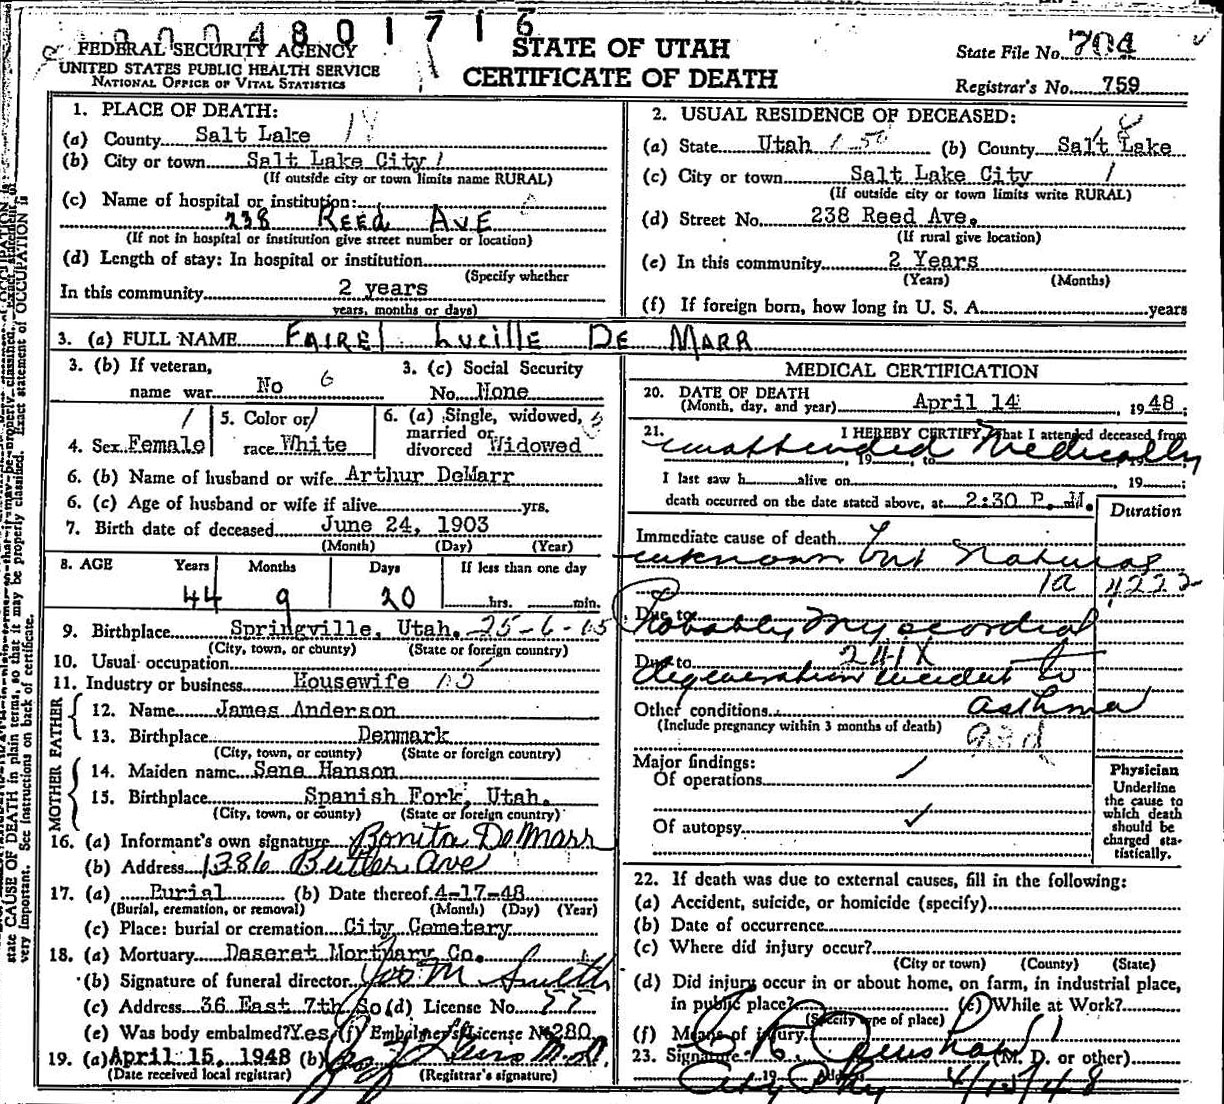 0004801716
FEDERAL SECURITY AGENCY
UNITED STATES PUBLIC HEALTH SERVICE
NATIONAL OFFICE OF VITAL STATISTICS
STATE OF UTAH
CERTIFICATE OF DEATH
State File No. 704
Registrar's No. 759
1. PLACE OF DEATH:
(a) County Salt Lake 18
(b) City or town Salt Lake City 1
(If outside city or town limits name RURAL)
(c) Name of hospital or institution:
238 REED AVE
(If not in hospital or institution give street number or location)
(d) Length of stay: In hospital or institution
(Specify whether
In this community 2 years
years, months or days)
2. USUAL RESIDENCE OF DECEASED:
(a) State Utah (b) County Salt Lake
(c) City or town Salt Lake City 1
(If outside city or town limits write RURAL)
(d) Street No. 238 Reed Ave.
(If rural give location)
(e) In this community 2 Years
(Years) (Months)
(f) If foreign born, how long in U. S. A. years
3. (a) FULL NAME FAIREL LUCILLE DE MARR
3. (b) If veteran,
name war No 6
3. (c) Social Security
No. None
4. Sex Female
5. Color or
race White
6. (a) Single, widowed,
married or
divorced Widowed
6. (b) Name of husband or wife Arthur DeMarr
6. (c) Age of husband or wife if alive yrs.
7. Birth date of deceased June 24, 1903
(Month) (Day) (Year)
8. AGE Years Months Days If less than one day
44 9 20 hrs. min.
9. Birthplace Springville, Utah.
(City, town, or county) (State or foreign country)
10. Usual occupation
11. Industry or business Housewife
FATHER
12. Name James Anderson
13. Birthplace Denmark
(City, town, or county) (State or foreign country)
MOTHER
14. Maiden name Sene Hanson
15. Birthplace Spanish Fork, Utah.
(City, town, or county) (State or foreign country)
16. (a) Informant's own signature Bonita DeMarr
(b) Address 1386 Butler Ave
17. (a) Burial (b) Date thereof 4-17-48
(Burial, cremation, or removal) (Month) (Day) (Year)
(c) Place: burial or cremation City Cemetery
18. (a) Mortuary Deseret Mortuary Co.
(b) Signature of funeral director
(c) Address 36 East 7th So (d) License No. 77
(e) Was body embalmed? Yes (f) Embalmer's License No 280
19. (a) April 15, 1948 (b)
(Date received local registrar) (Registrar's signature)
MEDICAL CERTIFICATION
20. DATE OF DEATH
(Month, day, and year) April 14, 1948;
21. I HEREBY CERTIFY, that I attended deceased from
unattended Medically
, 19 to 19
I last saw h alive on , 19 ;
death occurred on the date stated above, at 2:30 P. M.
Duration
Immediate cause of death
unknown but Natural
1a 4222
Due to
Probably Myocordial
Due to 241X
degeneration incident to
Other conditions asthma
(Include pregnancy within 3 months of death)
Major findings:
Of operations
Of autopsy
Physician
Underline
the cause to
which death
should be
charged sta-
tistically.
22. If death was due to external causes, fill in the following:
(a) Accident, suicide, or homicide (specify)
(b) Date of occurrence
(c) Where did injury occur?
(City or town) (County) (State)
(d) Did injury occur in or about home, on farm, in industrial place,
in public place? (e) While at Work?
(Specify type of place)
(f) Means of injury
23. Signature (M. D. or other)
19 Address
City Phy 4/15/48
state CAUSE OF DEATH in plain terms, so that it may be properly classified. Exact statement of OCCUPATION is
very important. See instructions on back of certificate.